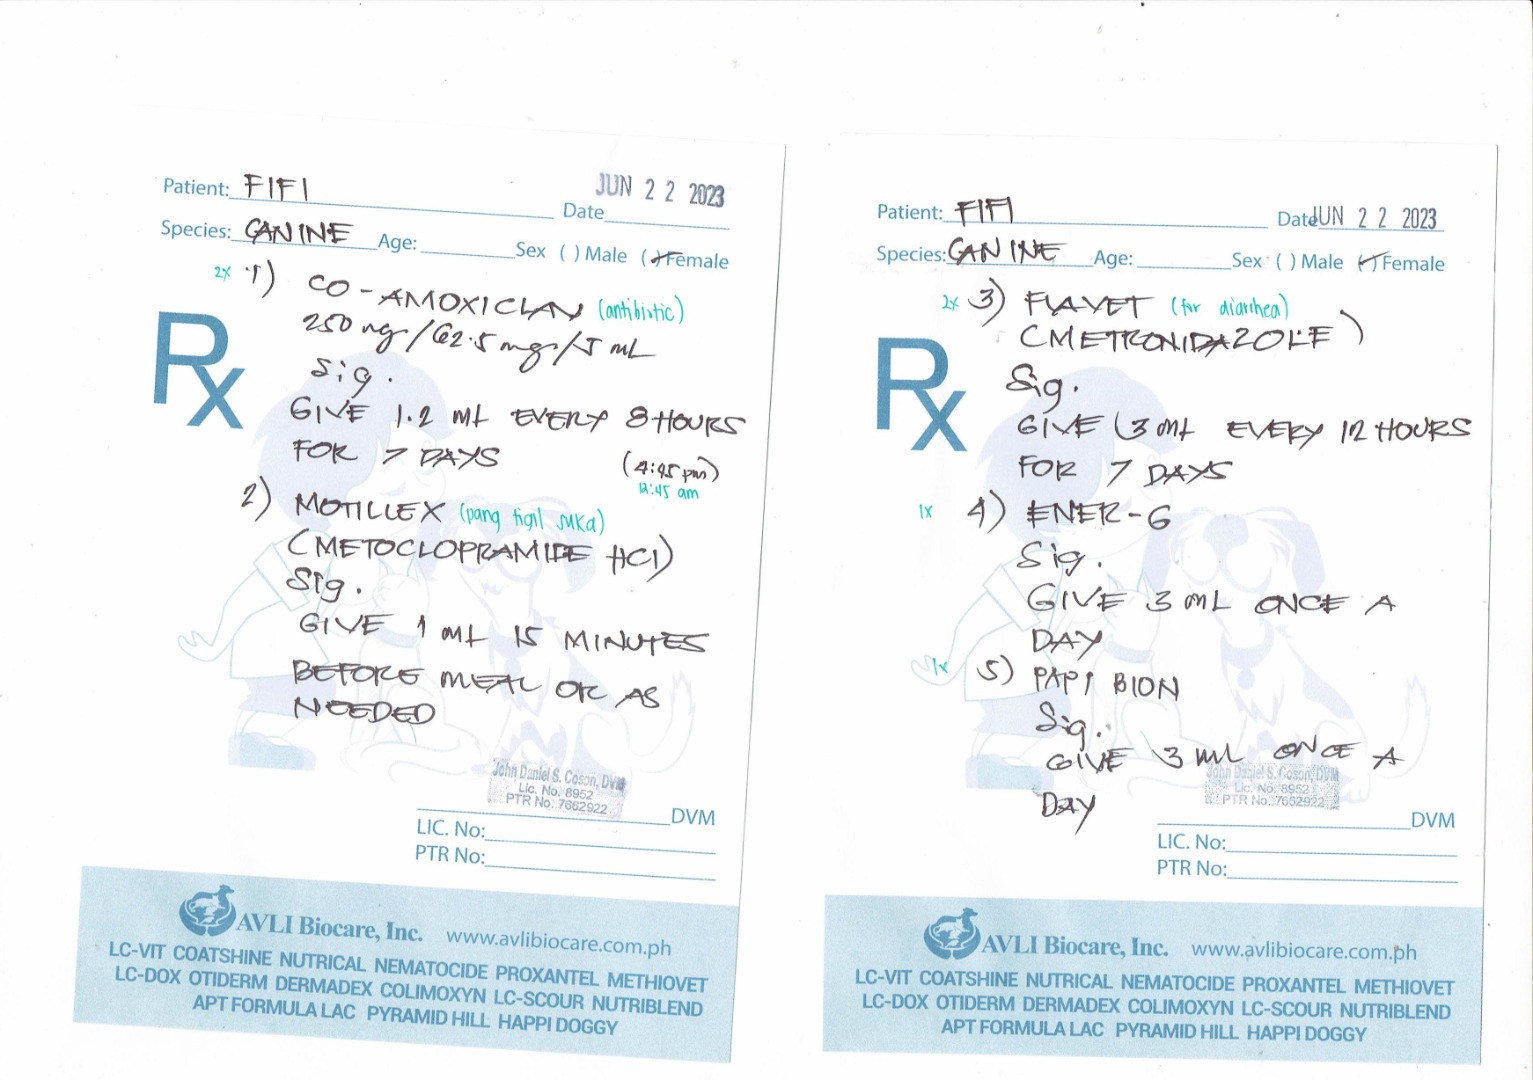 Patient: FIFI
JUN 22 2023
Date
Species: CANINE Age: Sex ( ) Male (✓) Female
2x 1) CO-AMOXICLAV (antibiotic)
250 mg/62.5 mg/5 mL
Sig.
GIVE 1.2 mL EVERY 8 HOURS
FOR 7 DAYS (4:45 pm)
12:45 am
2) MOTILLEX (pang tigil suka)
(METOCLOPRAMIDE HCl)
Sig.
GIVE 1 mL 15 MINUTES
BEFORE MEAL OR AS
NEEDED
Rx
John Daniel S. Coson, DVM
Lic. No. 8952
PTR No. 7662922
DVM
LIC. No:
PTR No:
AVLI Biocare, Inc. www.avlibiocare.com.ph
LC-VIT COATSHINE NUTRICAL NEMATOCIDE PROXANTEL METHIOVET
LC-DOX OTIDERM DERMADEX COLIMOXYN LC-SCOUR NUTRIBLEND
APT FORMULA LAC PYRAMID HILL HAPPI DOGGY
Patient: FIFI
Date JUN 22 2023
Species: CANINE Age: Sex ( ) Male (✓) Female
2x 3) FLAVET (for diarrhea)
(METRONIDAZOLE)
Sig.
GIVE 3 mL EVERY 12 HOURS
FOR 7 DAYS
1x 4) ENER-G
Sig.
GIVE 3 mL ONCE A
DAY
1x 5) PAPI BION
Sig.
GIVE 3 mL ONCE A
DAY
Rx
John Daniel S. Coson, DVM
Lic. No. 8952
PTR No. 7662922
DVM
LIC. No:
PTR No:
AVLI Biocare, Inc. www.avlibiocare.com.ph
LC-VIT COATSHINE NUTRICAL NEMATOCIDE PROXANTEL METHIOVET
LC-DOX OTIDERM DERMADEX COLIMOXYN LC-SCOUR NUTRIBLEND
APT FORMULA LAC PYRAMID HILL HAPPI DOGGY